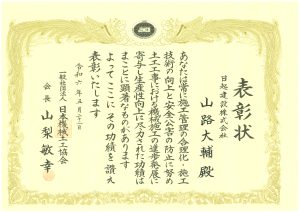 JCMCA
表彰状
日起建設株式会社
山路大輔 殿
あなたは常に施工管理の合理化・施工
技術の向上と安全公害の防止に努め
土工工事における機械施工の進歩発展に
寄与し生産性向上に尽くされた功績は
まことに顕著なものがあります
よってここにその功績を讃え
表彰いたします
令和六年五月二十二日
一般社団法人 日本機械土工協会
会長 山梨敏幸